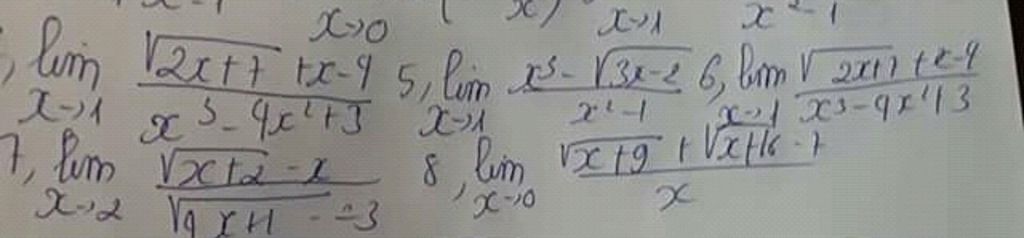 x→0 ( x) x→1 x²-1
, lim x→1 (√(2x+7) + x - 4)/(x³ - 4x² + 3) 5, lim x→1 (x³ - √(3x-2))/(x² - 1) 6, lim x→1 (√(2x+7) + x - 4)/(x³ - 4x² + 3)
7, lim x→2 (√(x+2) - x)/(√(4x+1) - 3) 8, lim x→0 (√(x+9) + √(x+16) - 7)/x